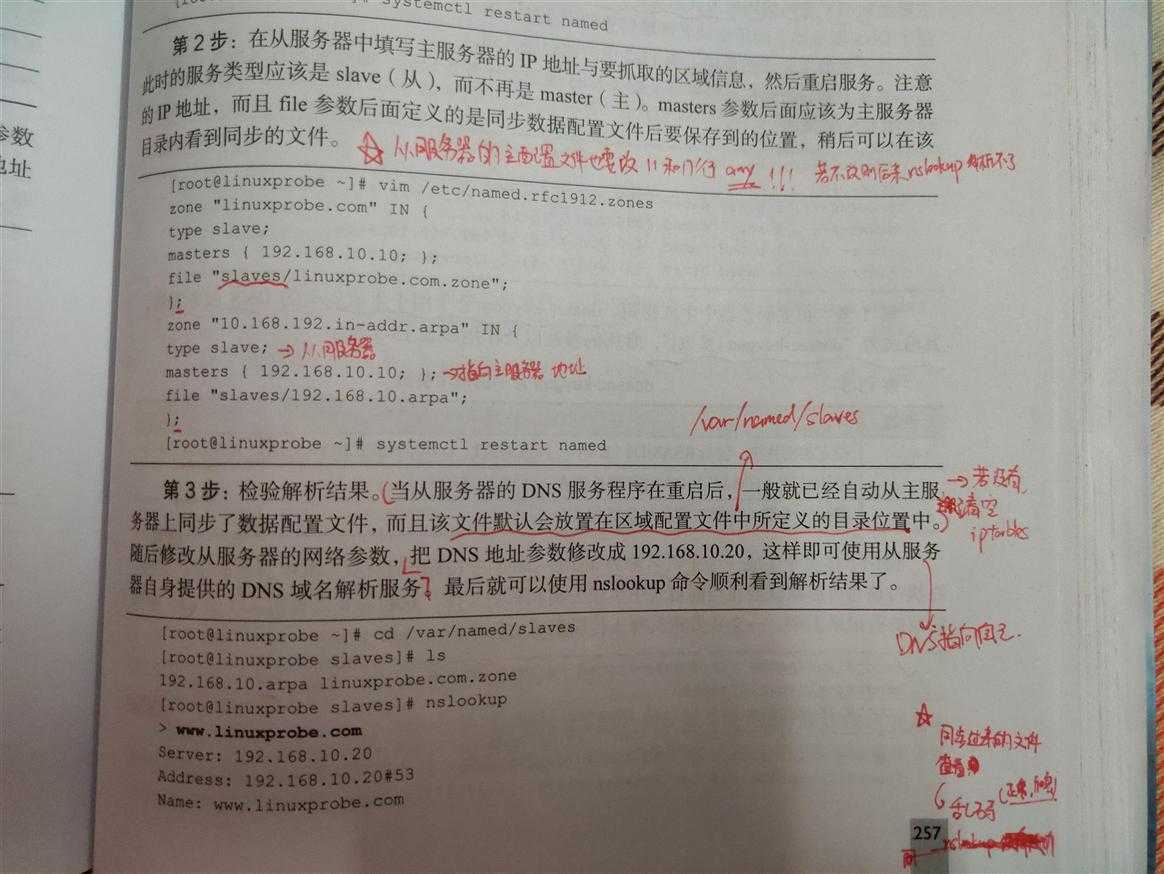 systemctl restart named
第2步：在从服务器中填写主服务器的 IP 地址与要抓取的区域信息，然后重启服务。注意
此时的服务类型应该是 slave（从），而不再是 master（主）。masters 参数后面应该为主服务器
的 IP 地址，而且 file 参数后面定义的是同步数据配置文件后要保存到的位置，稍后可以在该
目录内看到同步的文件。
参数
地址
☆ 从服务器的主配置文件也要改 11和17行 any !!! 若不改则后来nslookup 解析不了
[root@linuxprobe ~]# vim /etc/named.rfc1912.zones
zone "linuxprobe.com" IN {
type slave;
masters { 192.168.10.10; };
file "slaves/linuxprobe.com.zone";
};
zone "10.168.192.in-addr.arpa" IN {
type slave; → 从服务器
masters { 192.168.10.10; }; → 指向主服务器 地址
file "slaves/192.168.10.arpa";
};
/var/named/slaves
[root@linuxprobe ~]# systemctl restart named
第3步：检验解析结果。当从服务器的 DNS 服务程序在重启后，一般就已经自动从主服
务器上同步了数据配置文件，而且该文件默认会放置在区域配置文件中所定义的目录位置中。
随后修改从服务器的网络参数，把 DNS 地址参数修改成 192.168.10.20，这样即可使用从服务
器自身提供的 DNS 域名解析服务。最后就可以使用 nslookup 命令顺利看到解析结果了。
→ 若没有
清空
iptables
DNS指向自己.
[root@linuxprobe ~]# cd /var/named/slaves
[root@linuxprobe slaves]# ls
192.168.10.arpa linuxprobe.com.zone
[root@linuxprobe slaves]# nslookup
> www.linuxprobe.com
Server: 192.168.10.20
Address: 192.168.10.20#53
Name: www.linuxprobe.com
☆
同步过来的文件
查看
乱码
257
nslookup